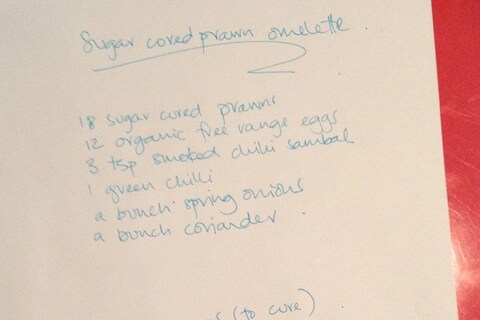 Sugar cured prawn omelette.
18 sugar cured prawns
12 organic free range eggs
3 tsp smoked chilli sambal
1 green chilli
a bunch spring onions
a bunch coriander.
(to cure)